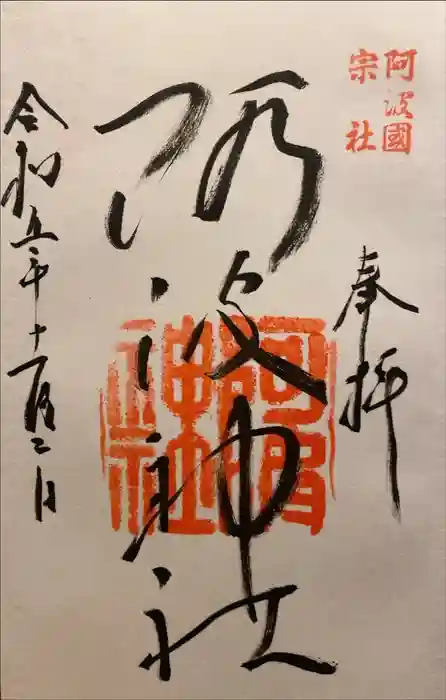 阿波國
宗社
奉拝
阿波神社
阿波神社
令和五年十一月二日